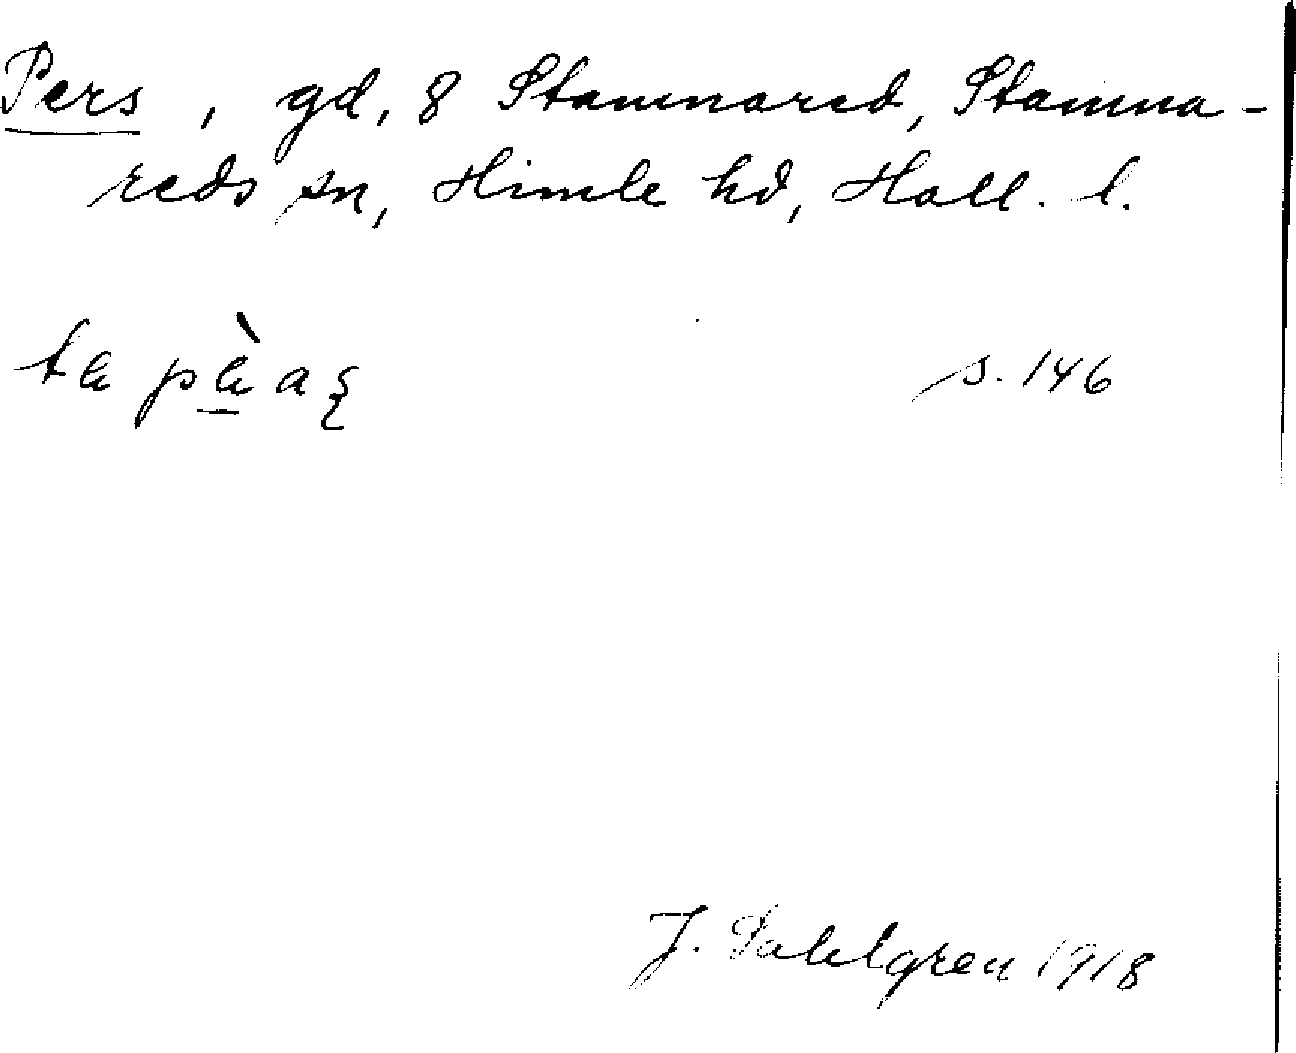 Pers, gd, 8 Stamnared, Stamna-
reds sn, Himle hd, Hall. l.
s. 146
J. Dahlgren 1918